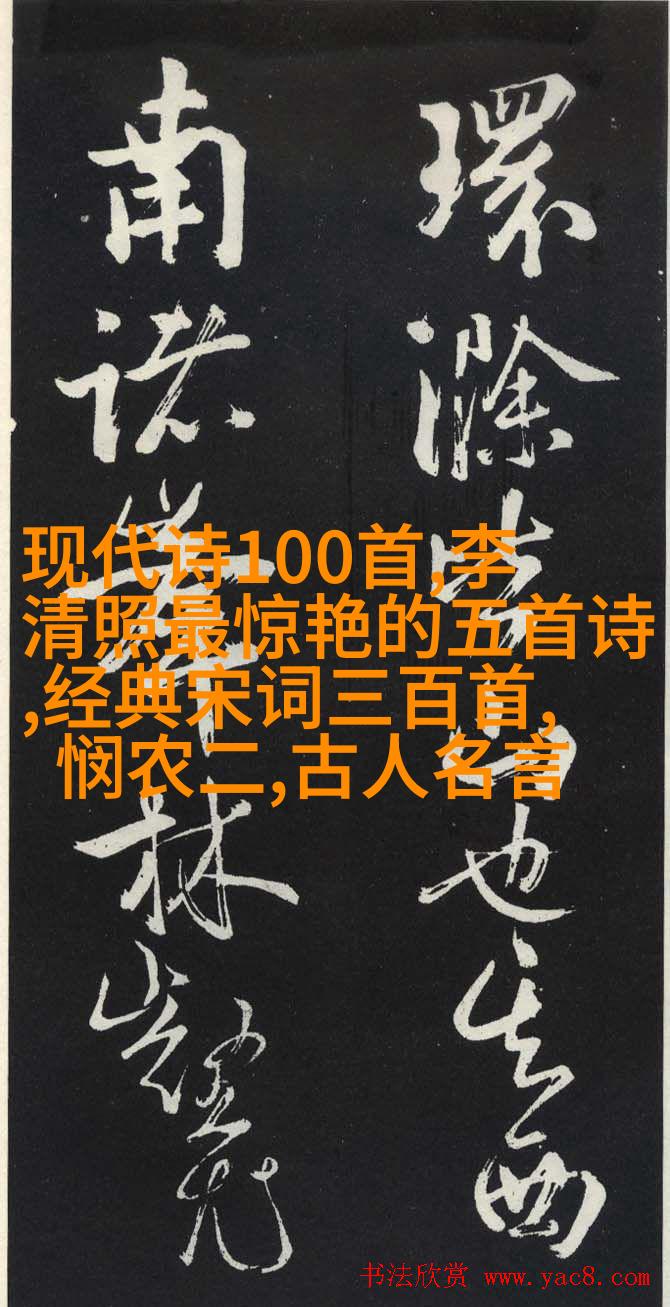 環滁皆山也其西
南諸峯林壑尤
现代诗100首,李
清照最惊艳的五首诗
,经典宋词三百首,
悯农二,古人名言
书法欣赏 www.yac8.com